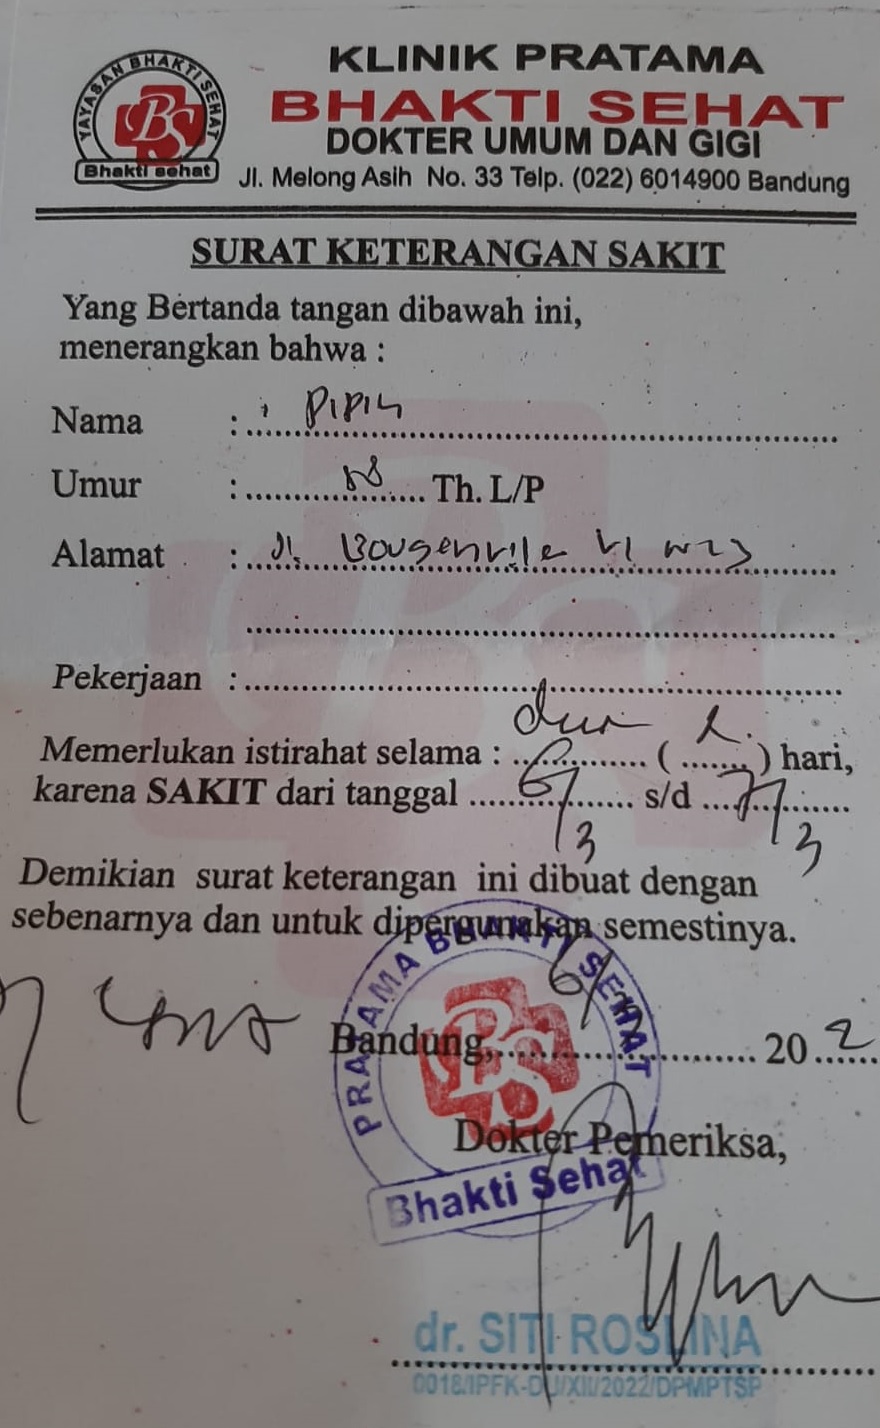 YAYASAN BHAKTI SEHAT
BS
Bhakti sehat
KLINIK PRATAMA
BHAKTI SEHAT
DOKTER UMUM DAN GIGI
Jl. Melong Asih No. 33 Telp. (022) 6014900 Bandung
SURAT KETERANGAN SAKIT
Yang Bertanda tangan dibawah ini,
menerangkan bahwa :
Nama : Pipin
Umur : Th. L/P
Alamat : Jl. Bougenville VI
Pekerjaan :
Memerlukan istirahat selama : dua ( 2 ) hari,
karena SAKIT dari tanggal 6/3 s/d 7/3
Demikian surat keterangan ini dibuat dengan
sebenarnya dan untuk dipergunakan semestinya.
Bandung, 6/3 202
PRATAMA BHAKTI SEHAT
BS
Bhakti Sehat
Dokter Pemeriksa,
dr. SITI ROSLINA
0018/IPFK-DU/XII/2022/DPMPTSP